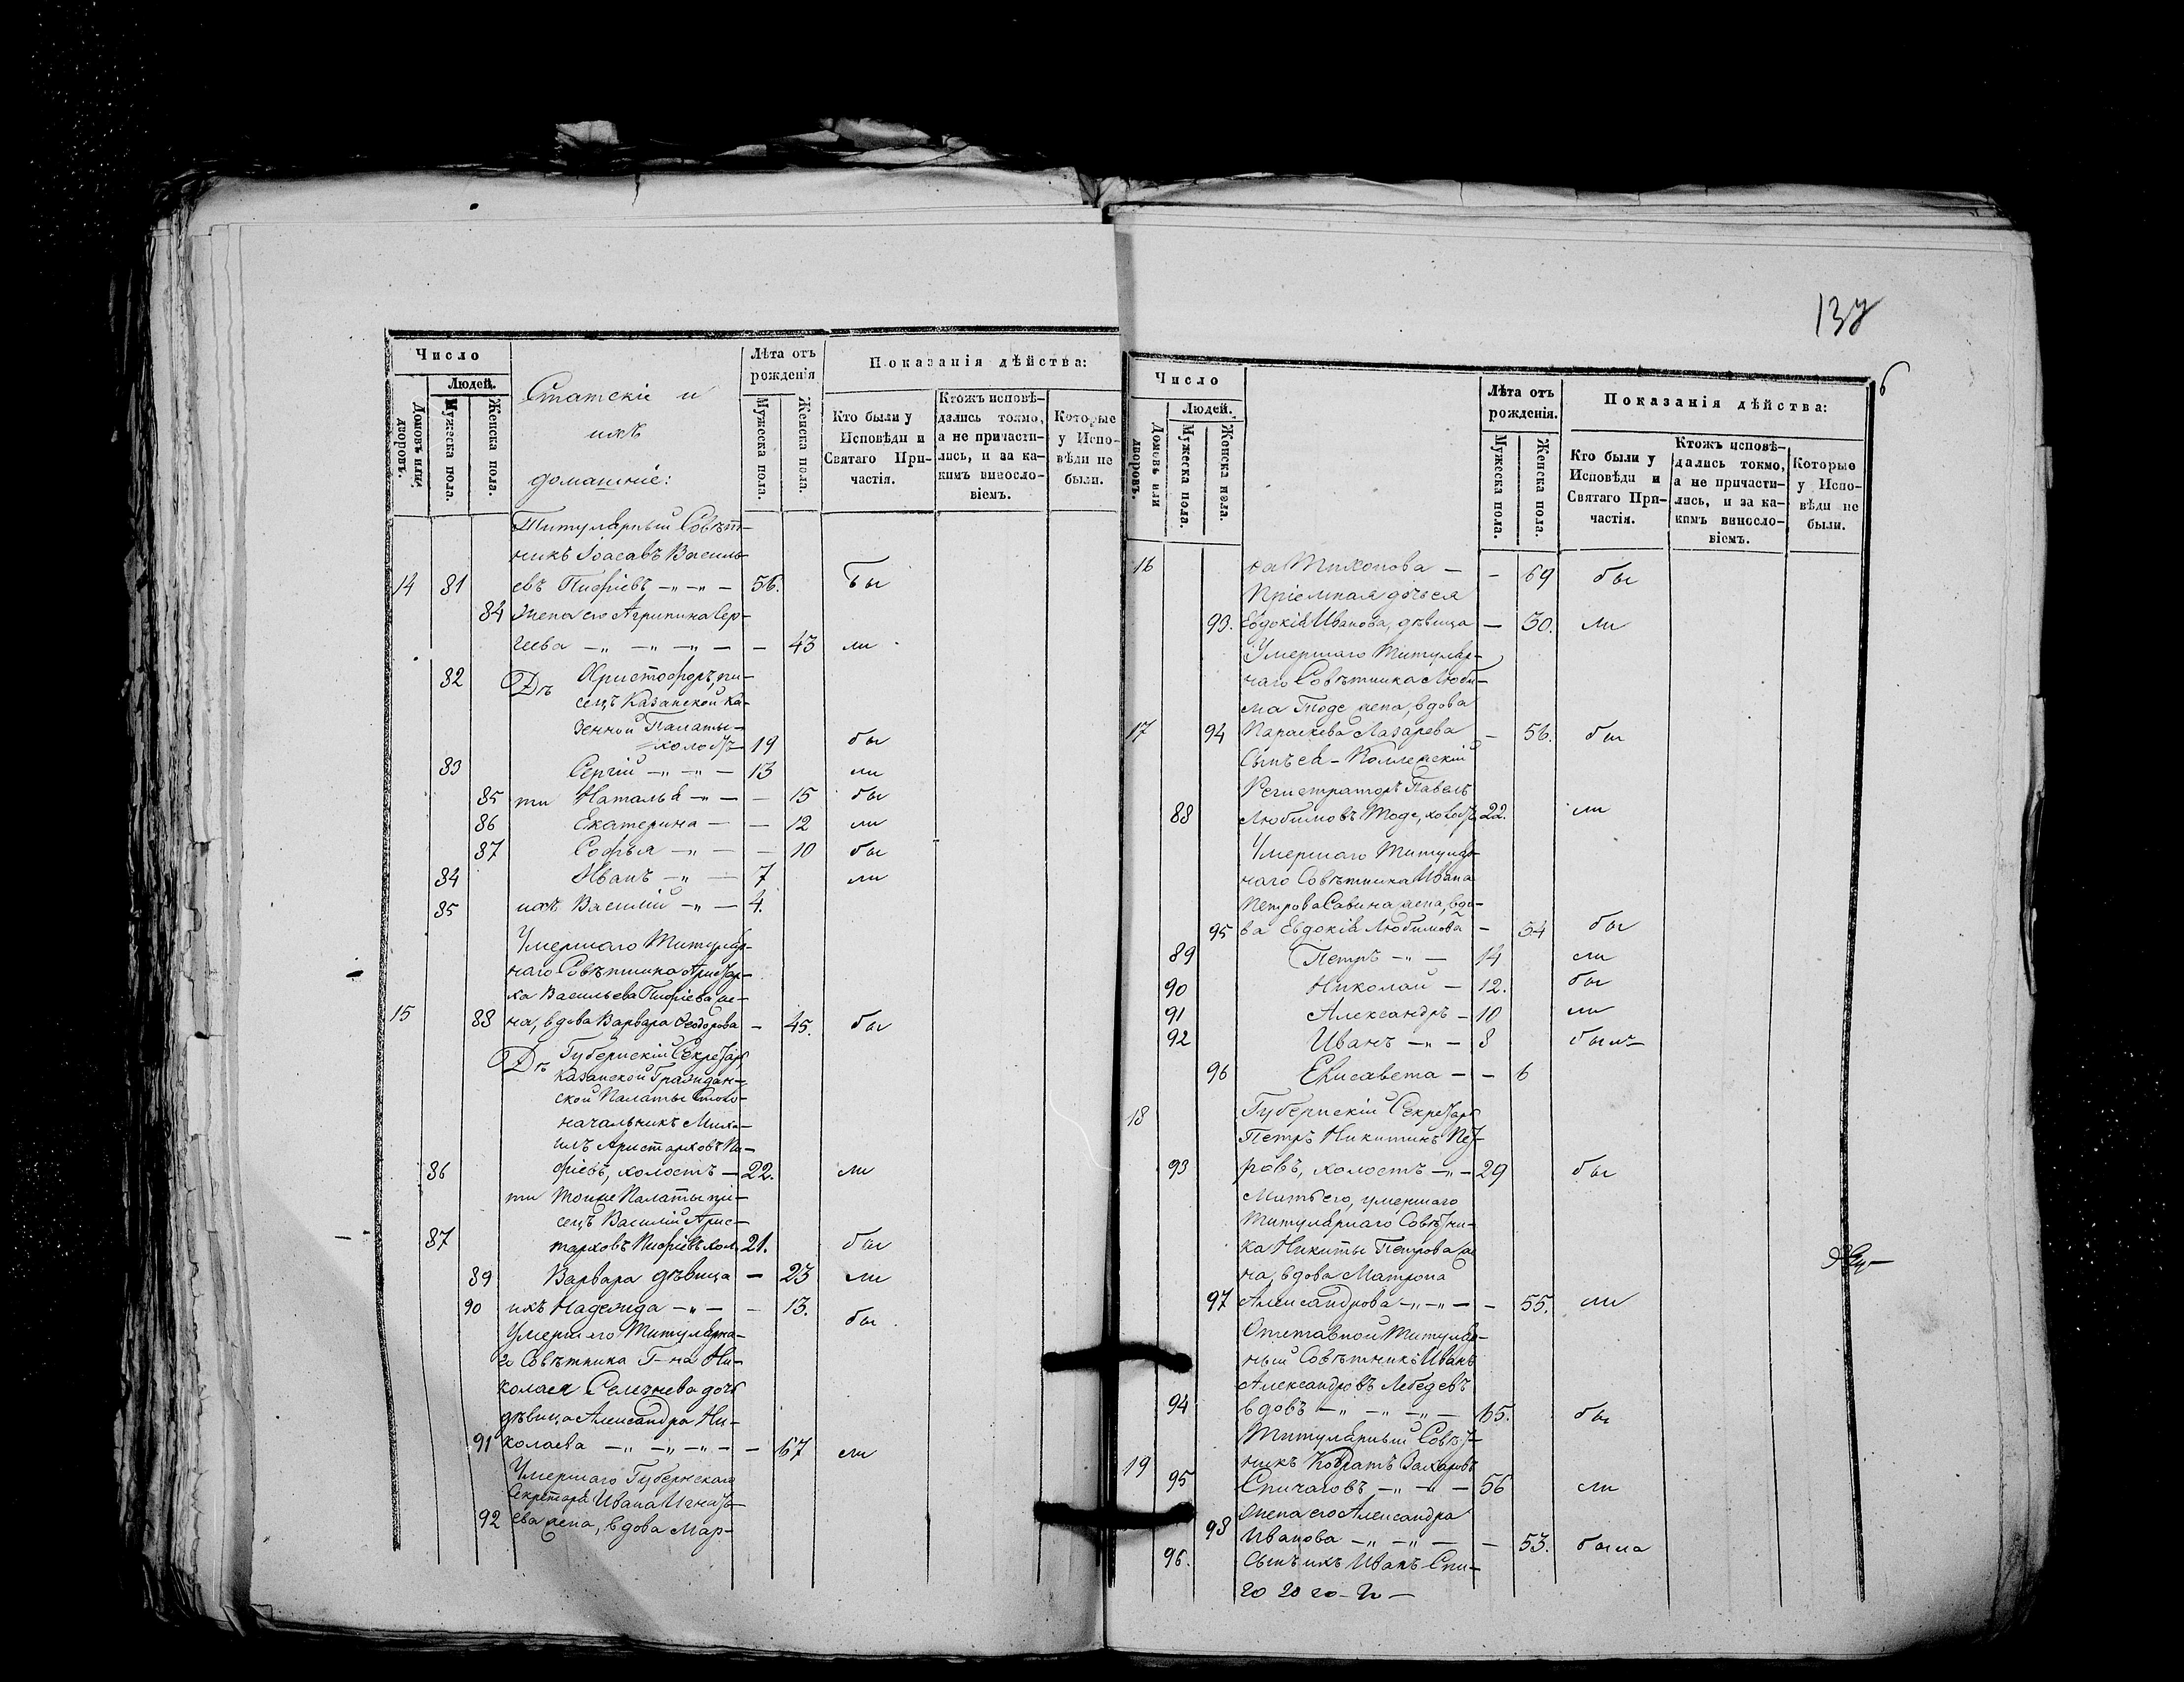 Число
Людей.
Домовъ или дворовъ.
Мужеска пола.
Женска пола.
Статскіе и
ихъ
домашніе:
Лѣта отъ рожденія
Мужеска пола.
Женска пола.
Показанія дѣйства:
Кто были у Исповѣди и Святаго Причастія.
Ктожъ исповѣдались токмо, а не причастились, и за какимъ винословіемъ.
Которые у Исповѣди не были.
Титулярный Совѣт-
никъ Іоасавъ Василь-
14 81 евъ Пифіевъ -"-"- 56. бы
84 Жена его Агрипина Сер-
гіева -"-"-"- - 43 ли
82 Дѣ Христофоръ, пи-
сецъ Казанской Ка-
зенной Палаты
холостъ 19 бы
83 Сергій -"-"- 13 ли
85 ти Наталья -"- - 15 бы
86 Екатерина - - 12 ли
87 Софья -"- - 10 бы
84 Иванъ -"- 7 ли
85 ихъ Василій -"- 4.
Умершаго Титуляр-
наго Совѣтника Аристар-
ха Васильева Пифіева же-
15 88 на, вдова Варвара Ѳеодорова - 45. бы
Дѣ Губернскій Секретарь
Казанской Граждан-
ской Палаты Столо-
начальникъ Миха-
илъ Аристарховъ Пи-
86 фіевъ, холостъ - 22. ли
ти тоиже Палаты пи-
сецъ Василій Арис-
87 тарховъ Пифіевъ хол. 21. бы
89 Варвара дѣвица - 23 ли
90 ихъ Надежда -"- - 13. бы
Умершаго Титулярна-
го Совѣтника Г-на Ни-
колая Селезнева дочь
дѣвица Александра Ни-
91 колаева -"-"-"- - 67 ли
Умершаго Губернскаго
Секретаря Ивана Игнатьева
92 жена, вдова Мар-
137
6
Число
Людей.
Домовъ или дворовъ.
Мужеска пола.
Женска пола.
Лѣта отъ рожденія.
Мужеска пола.
Женска пола.
Показанія дѣйства:
Кто были у Исповѣди и Святаго Причастія.
Ктожъ исповѣдались токмо, а не причастились, и за какимъ винословіемъ.
Которые у Исповѣди не были.
16 Тихонова - - 69 бы
Пріемная дочь ея
93. Евдокія Иванова, дѣвица - 30. ли
Умершаго Титуляр-
наго Совѣтника Люби-
ма Тоде жена, вдова
17 94 Параскева Лазарева - 56. бы
Сынъ ея - Коллежскій
Регистраторъ Павелъ
88 Любимовъ Тоде, холостъ 22. ли
Умершаго Титуляр-
наго Совѣтника Ивана
Петрова Савина жена, вдо-
95 ва Евдокія Любимова - 34 бы
89 Петръ -"- 14 ли
90 Николай - 12. бы
91 Александръ - 10 ли
92 Иванъ -"- 8 былъ
96 Елисавета - - 6
18 Губернскій Секретарь
Петръ Никитинъ Пет-
93 ровъ, холостъ -"- 29 бы
Мать его, умершаго
Титулярнаго Совѣтни-
ка Никиты Петрова же
на, вдова Матрона
97 Александрова -"-"- - 55. ли
Отставной Титуляр-
ный Совѣтникъ Иванъ
Александровъ Лебедевъ
94 вдовъ -"-"-"- 65. бы
Титулярный Совѣт-
19 никъ Кодратъ Захаровъ
95 Спичаговъ -"-"- 56 ли
Жена его Александра
98 Иванова -"-"- - 53. была
96. Сынъ ихъ Иванъ Спи-